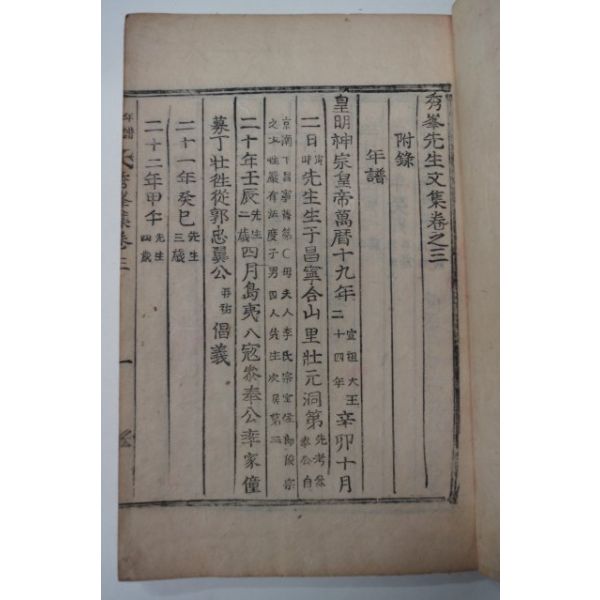 秀峯先生文集卷之三
附錄
年譜
皇明神宗皇帝萬曆十九年宣祖大王二十四年辛卯十月
二日寅時先生生于昌寧合山里壯元洞第先考參奉公自
京湳下昌寧舊第〇母夫人李氏宗室
之女性嚴有法度子男四人先生次居第二
二十年壬辰先生二歲四月島夷入寇參奉公率家僮
募丁壯往從郭忠翼公再祐倡義
二十一年癸巳先生三歲
二十二年甲午先生四歲
年譜 秀峯集卷三 一